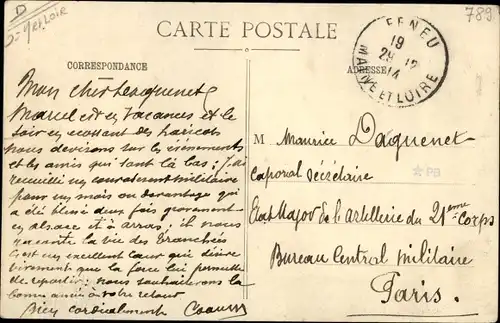 D
789
CARTE POSTALE
CORRESPONDANCE
ADRESSE
FENEU
19
29 12
14
MAINE ET LOIRE
Mon cher Dacquenet
Marcel est en vacances et le
soir en ecossant des haricots
nous devisons sur les évènements
et les amis qui sont là bas ; J'ai
recueilli un convalescent militaire
pour un mois ou davantage qui
a été blessé deux fois gravement
en alsace et à arras ; il nous
raconte la vie des tranchées
C'est un excellent cœur qui désire
vivement que la force lui permette
de repartir ; nous souhaiterons la
bonne année à votre retour
Bien cordialement
M Maurice Daquenet
Caporal Sécrétaire
Etat Major de l'artillerie du 21eme Corps
Bureau Central Militaire
Paris.
PB